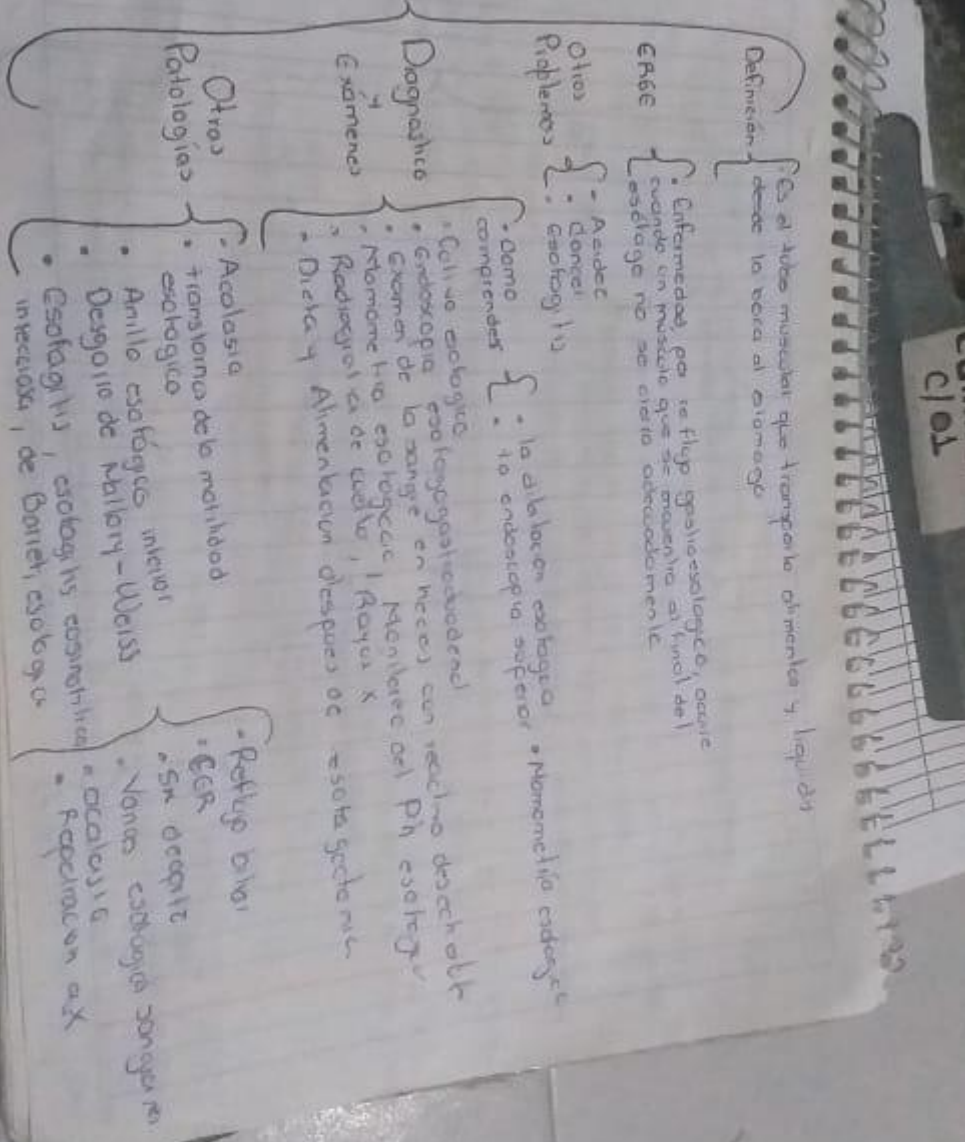 C/01
Definición
• Es el tubo muscular que transporta alimentos y liquidos
desde la boca al estomago
ERGE
• Enfermedad por reflujo gastroesofagico, ocurre
cuando un musculo que se encuentra al final del
esófago no se cierra adecuadamente
Otros
Problemas
• Acidez
• Cancer
• Esofagitis
Diagnostico
y
Exámenes
• Como
comprender
• la dilatacion esofagica
• la endoscopia superior
• Manometria esofagica
• Cultivo esofagico
• Endoscopia esofagogastroduodenal
• Examen de la sangre en heces con reactivo
• Manometria esofagica, Monitoreo del Ph
• Radiografia de cuello, Rayos X
• Dieta y Alimentacion despues de
Otras
Patologías
• Acalasia
• transtorno de la motilidad
esofagico
• Anillo esofágico inferior
• Desgarro de Mallory-Weiss
• Esofagitis, esofagitis eosinofilica
infecciosa, de Barret, esofagica
• Reflujo biliar
• EGR
• Varices
• acalasia